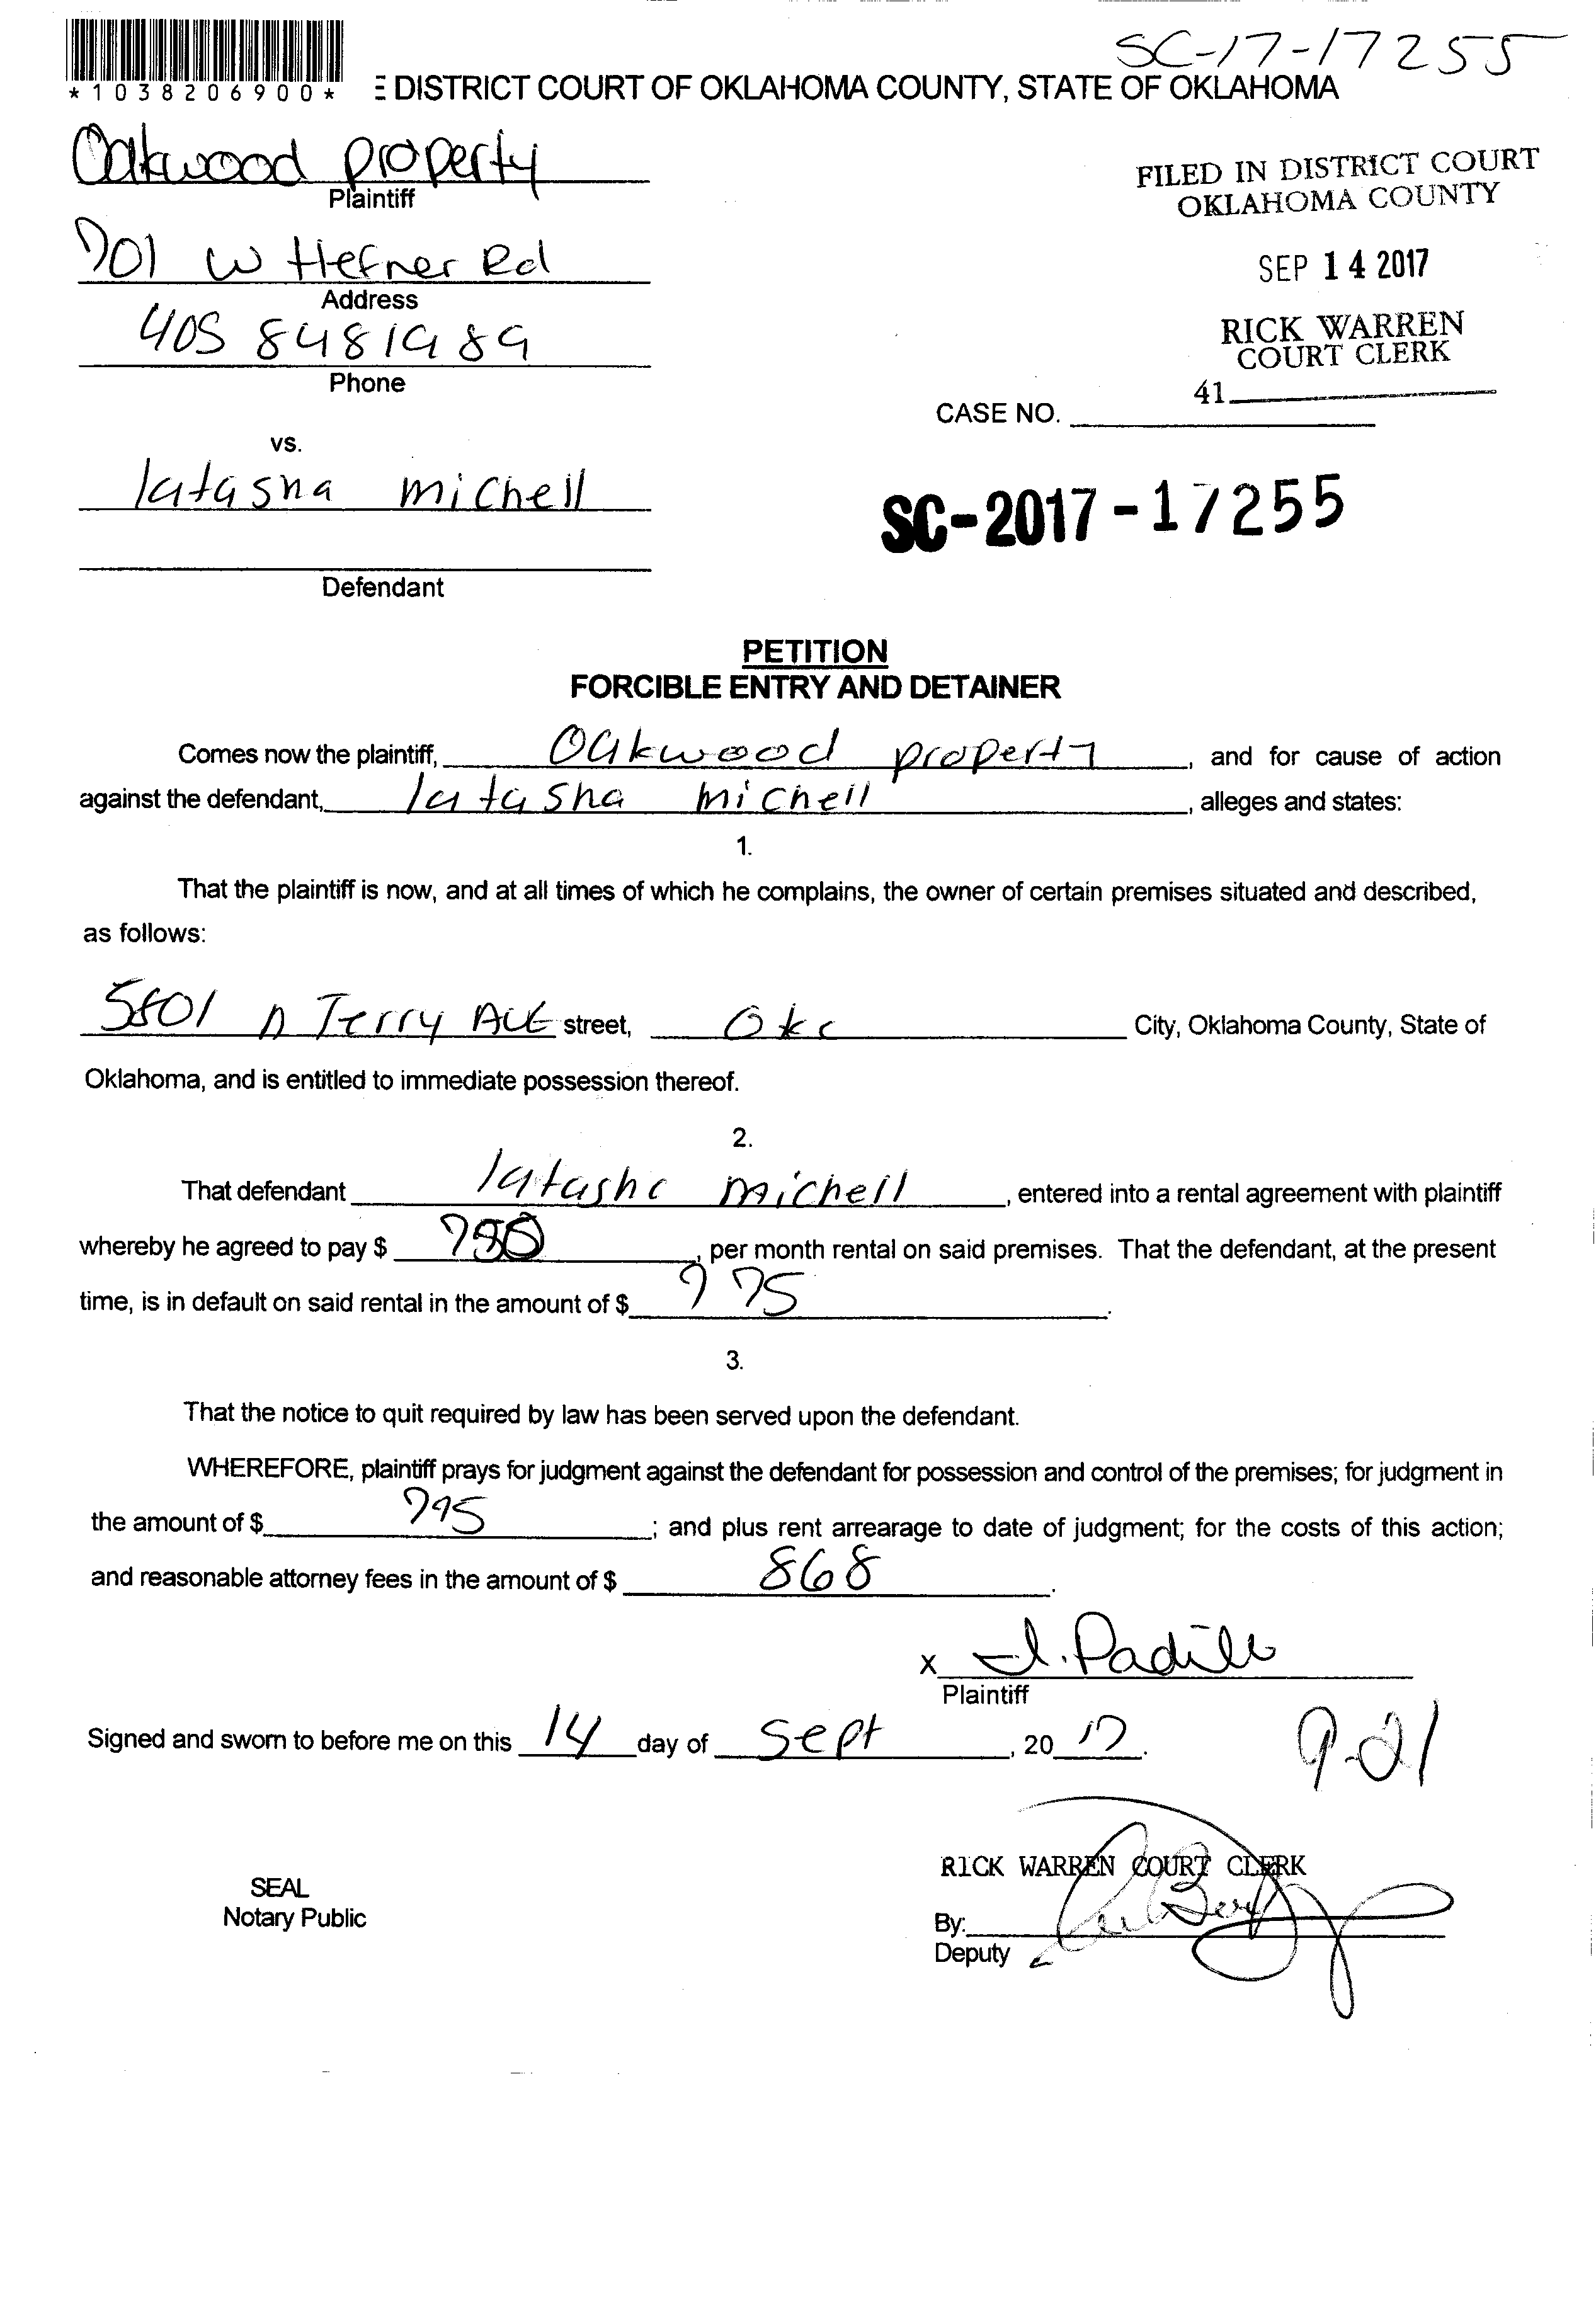 SC-17-17255
*1038206900*
E DISTRICT COURT OF OKLAHOMA COUNTY, STATE OF OKLAHOMA
Oakwood property
Plaintiff
FILED IN DISTRICT COURT
OKLAHOMA COUNTY
701 W Hefner Rd
Address
SEP 14 2017
405 8481989
Phone
RICK WARREN
COURT CLERK
41
CASE NO.
vs.
latasha michell
SC-2017-17255
Defendant
PETITION
FORCIBLE ENTRY AND DETAINER
Comes now the plaintiff, Oakwood property, and for cause of action
against the defendant, latasha michell, alleges and states:
1.
That the plaintiff is now, and at all times of which he complains, the owner of certain premises situated and described,
as follows:
5801 n Terry Ave street, Okc City, Oklahoma County, State of
Oklahoma, and is entitled to immediate possession thereof.
2.
That defendant latasha michell, entered into a rental agreement with plaintiff
whereby he agreed to pay $ , per month rental on said premises. That the defendant, at the present
time, is in default on said rental in the amount of $ 775.
3.
That the notice to quit required by law has been served upon the defendant.
WHEREFORE, plaintiff prays for judgment against the defendant for possession and control of the premises; for judgment in
the amount of $ ; and plus rent arrearage to date of judgment; for the costs of this action;
and reasonable attorney fees in the amount of $ 868.
x J. Padilla
Plaintiff
Signed and sworn to before me on this 14 day of Sept, 2017.
9-21
RICK WARREN COURT CLERK
SEAL
Notary Public
By:
Deputy